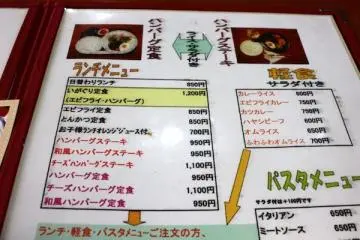 ハンバーグ定食
ライス・サラダ付き
ハンバーグステーキ
ランチメニュー
日替わりランチ 850円
いがぐり定食 1,200円
(エビフライ・ハンバーグ)
エビフライ定食 850円
とんかつ定食 850円
お子様ランチオレンジジュース付。 700円
ハンバーグステーキ 950円
和風ハンバーグステーキ 950円
チーズハンバーグステーキ 1,100円
ハンバーグ定食 950円
チーズハンバーグ定食 1,100円
和風ハンバーグ定食 950円
軽食
サラダ付き
カレーライス 600円
エビフライカレー 750円
カツカレー 700円
ハヤシビーフ 600円
オムライス 650円
ふわふわオムライス 700円
パスタメニュー
サラダ付は+100円です
イタリアン 650円
ミートソース 650円
ランチ・軽食・パスタメニューご注文の方、